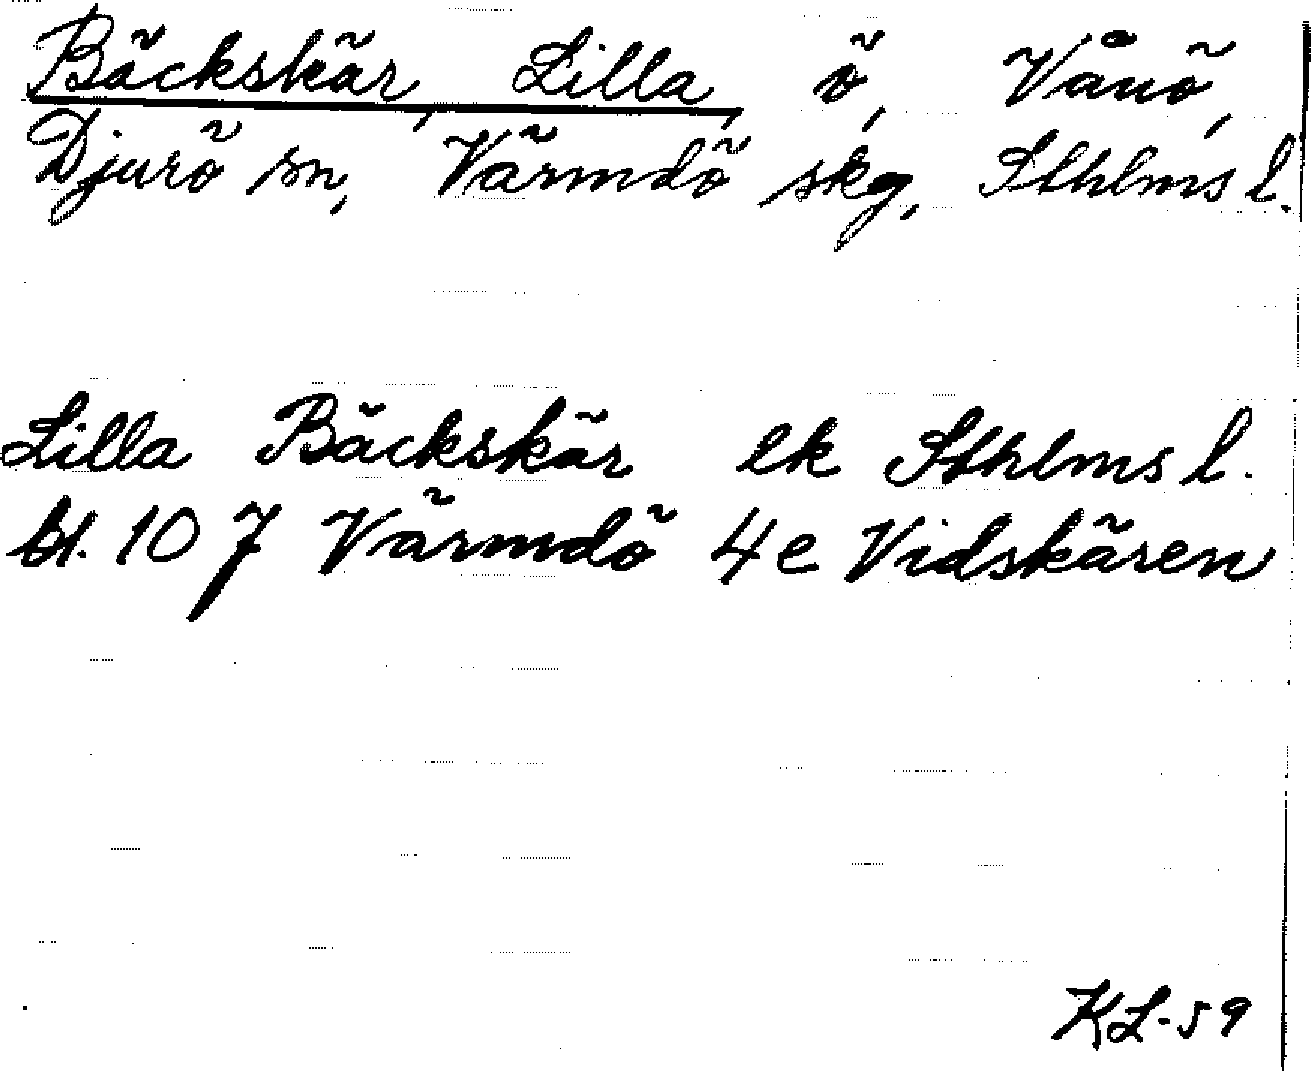 Bäckskär, Lilla, ö, Vånö,
Djurö sn, Värmdö skg, Sthlms l.
Lilla Bäckskär ek Sthlms l.
bl. 107 Värmdö 4e Vidskären
KL-59